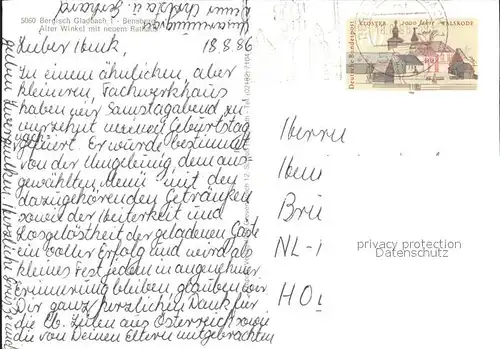 5060 Bergisch Gladbach 1 - Bensberg
Alter Winkel mit neuem Rathaus
Lieber Henk, 18.8.86
In einem ähnlichen, aber
kleineren, Fachwerkhaus
haben wir Samstagabend zu
meinen Geburtstag
gefeiert. Er wurde bestimmt
von der Umgebung, dem aus-
gewählten Menü mit den
dazugehörenden Getränken
sowie der Heiterkeit und
Losgelöstheit der geladenen Gäste
ein voller Erfolg und wird als
kleines Fest jedem in angenehmer
Erinnerung bleiben, glauben wir
Dir ganz herzlichen Dank für
die lb. Zeilen aus Österreich sowie
die von Deinen Eltern mitgebrachten
Herzliche Grüße und
KLOSTER 1000 JAHRE WALSRODE
Deutsche Bundespost
Herrn
Hen
Brü
NL-
HOL
privacy protection
Datenschutz